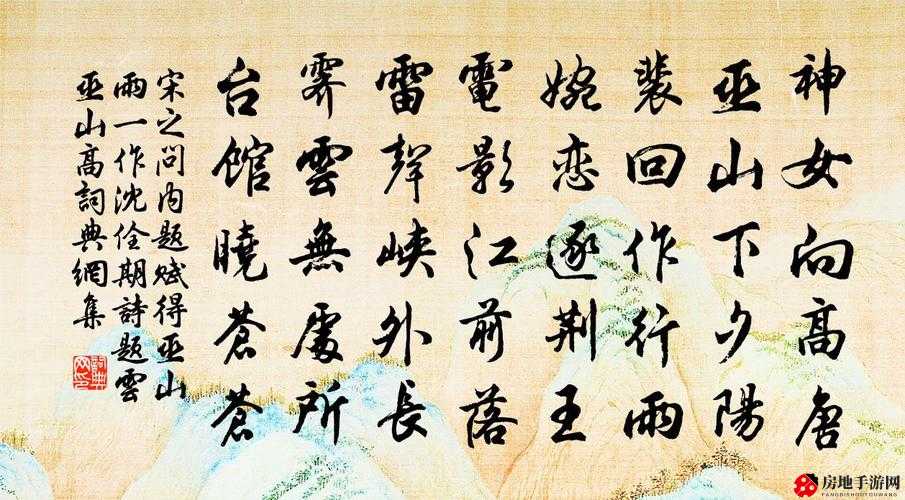 神女向高唐
巫山下夕陽
裴回作行雨
婉戀逐荆王
電影江前落
雷聲峽外長
霽雲無處所
台館曉蒼蒼
宋之問內題賦得巫山
雨一作沈佺期詩題雲
巫山高詞典網集
房地手游网
FANGDISHOUYOUWANG